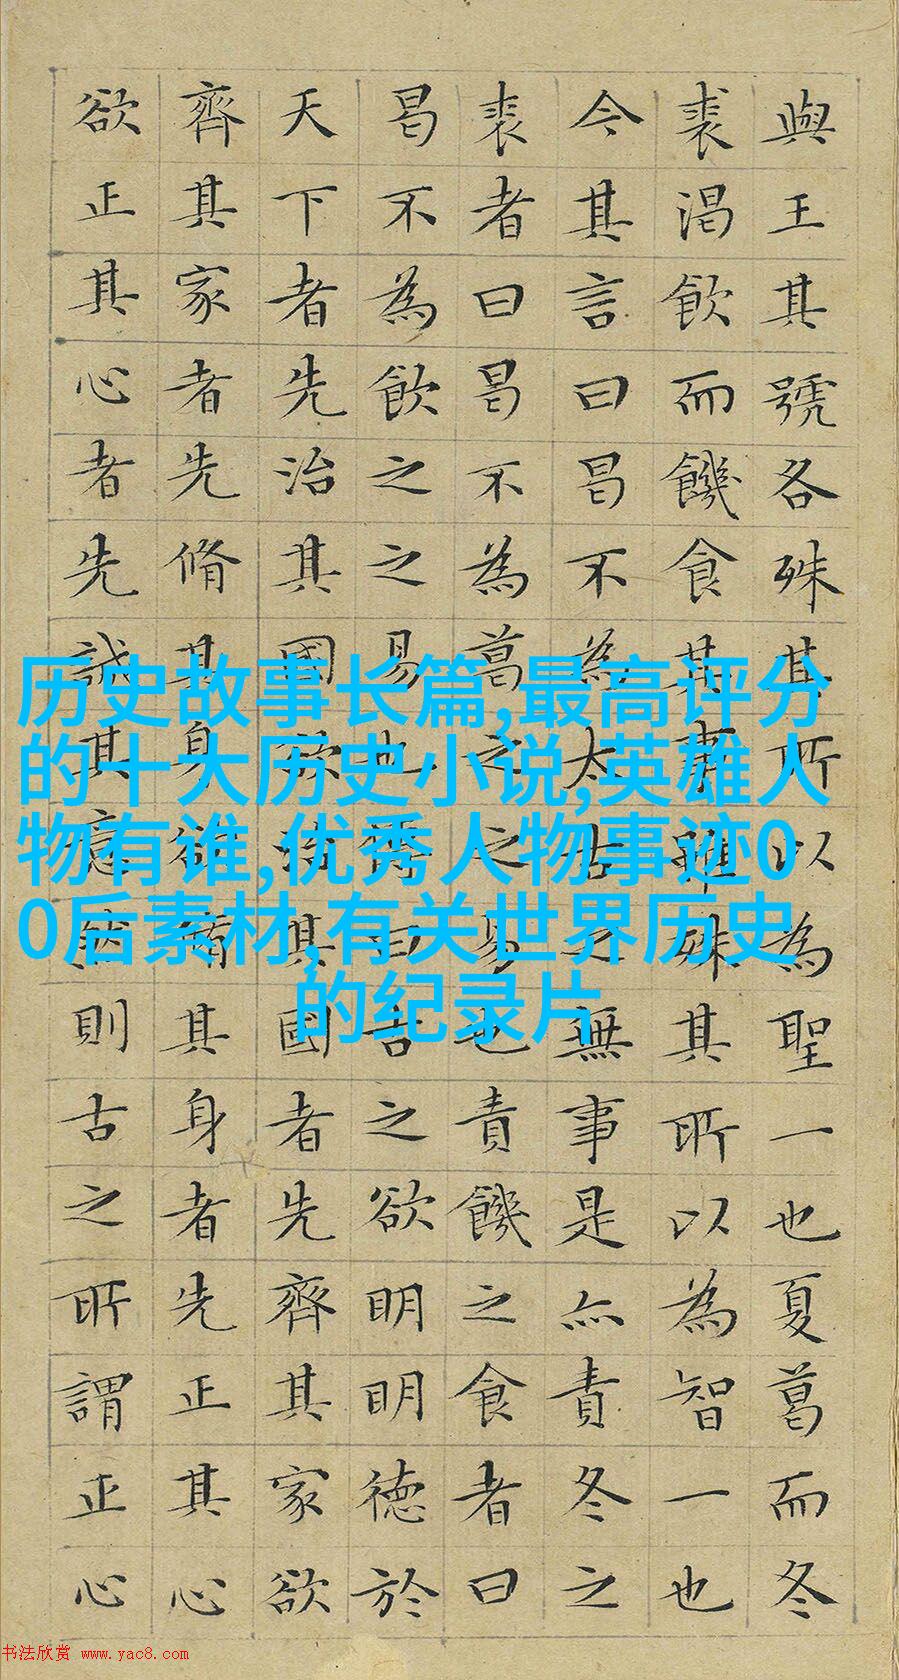 與王其號各殊其所以為聖一也夏葛而冬
裘渴飲而饑食其事雖殊其所以為智一也
今其言曰曷不為太古之無事是亦責冬之
裘者曰曷不為葛之之易也責饑之食者曰
曷不為飲之之易也傳曰古之欲明明德於
天下者先治其國欲治其國者先齊其家欲
齊其家者先脩其身欲脩其身者先正其心
欲正其心者先誠其意然則古之所謂正心
历史故事长篇,最高评分
的十大历史小说,英雄人
物有谁,优秀人物事迹0
0后素材,有关世界历史
的纪录片
书法欣赏 www.yac8.com